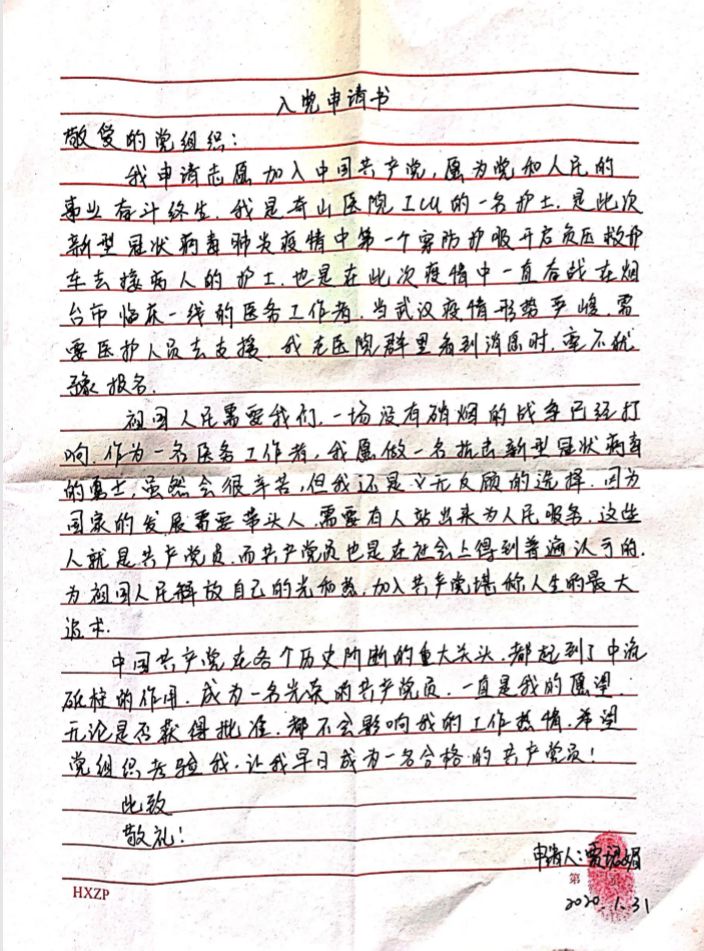 入党申请书
敬爱的党组织：
我申请志愿加入中国共产党，愿为党和人民的
事业奋斗终生。我是奇山医院ICU的一名护士，是此次
新型冠状病毒肺炎疫情中第一个穿防护服开启负压救护
车去接病人的护士，也是在此次疫情中一直奋战在烟
台市临床一线的医务工作者，当武汉疫情形势严峻，需
要医护人员去支援，我在医院群里看到消息时，毫不犹
豫报名。
祖国人民需要我们，一场没有硝烟的战争已经打
响，作为一名医务工作者，我愿做一名抗击新型冠状病毒
的勇士，虽然会很辛苦，但我还是义无反顾的选择，因为
国家的发展需要带头人，需要有人站出来为人民服务，这些
人就是共产党员，而共产党员也是在社会上得到普遍认可的，
为祖国人民释放自己的光和热，加入共产党堪称人生的最大
追求。
中国共产党在各个历史阶断的重大关头，都起到了中流
砥柱的作用，成为一名光荣的共产党员，一直是我的愿望，
无论是否获得批准，都不会影响我的工作热情，希望
党组织考验我，让我早日成为一名合格的共产党员！
此致
敬礼！
申请人：贾
第
HXZP
2020.1.31